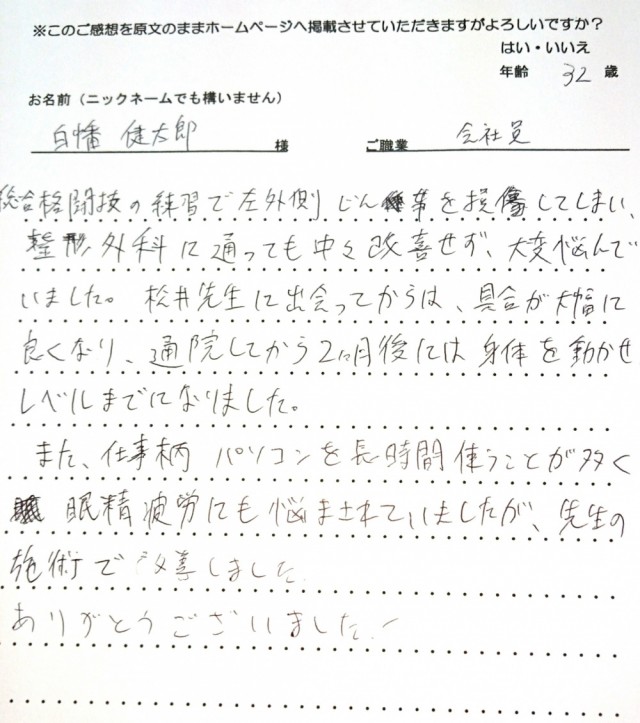 ※このご感想を原文のままホームページへ掲載させていただきますがよろしいですか？
はい・いいえ
年齢 32 歳
お名前（ニックネームでも構いません）
白幡 健太郎 様 ご職業 会社員
総合格闘技の練習で左外側じん帯を損傷してしまい、
整形外科に通っても中々改善せず、大変悩んで
いました。松井先生に出会ってからは、具合が大幅に
良くなり、通院してから2ヶ月後には身体を動かせ
レベルまでになりました。
また、仕事柄 パソコンを長時間使うことが多く
眼精疲労にも悩まされていましたが、先生の
施術で改善しました。
ありがとうございました！